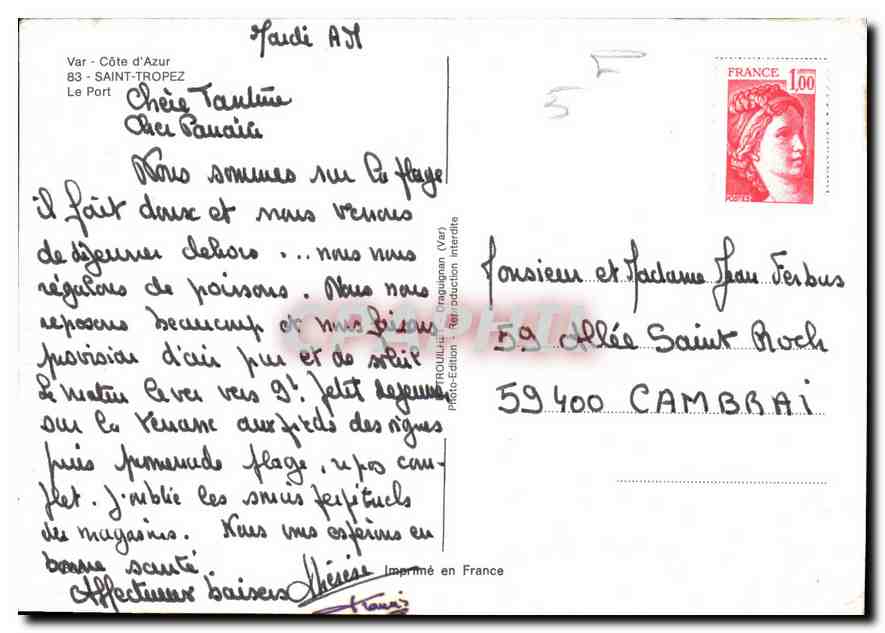 Mardi AM
Var - Côte d'Azur
83 - SAINT-TROPEZ
Le Port
Chère Tantine
Cher Parrain
Nous sommes sur la plage
il fait doux et nous venons
de déjeuner dehors ... nous nous
régalons de poissons. Nous nous
reposons beaucoup et nous faisons
provision d'air pur et de soleil
Le matin lever vers 9h. Petit déjeuner
sur la terrasse aux pieds des vignes
puis promenade plage, repos com-
plet. J'oublie les soucis perpétuels
des magasins. Nous vous espérons en
bonne santé.
Affectueux baisers Thérèse
Draguignan (Var)
Photo-Edition - Reproduction interdite
CPAPHIL
Imprimé en France
FRANCE 1,00
POSTES
Monsieur et Madame Jean Ferbus
59 Allée Saint Roch
59400 CAMBRAI